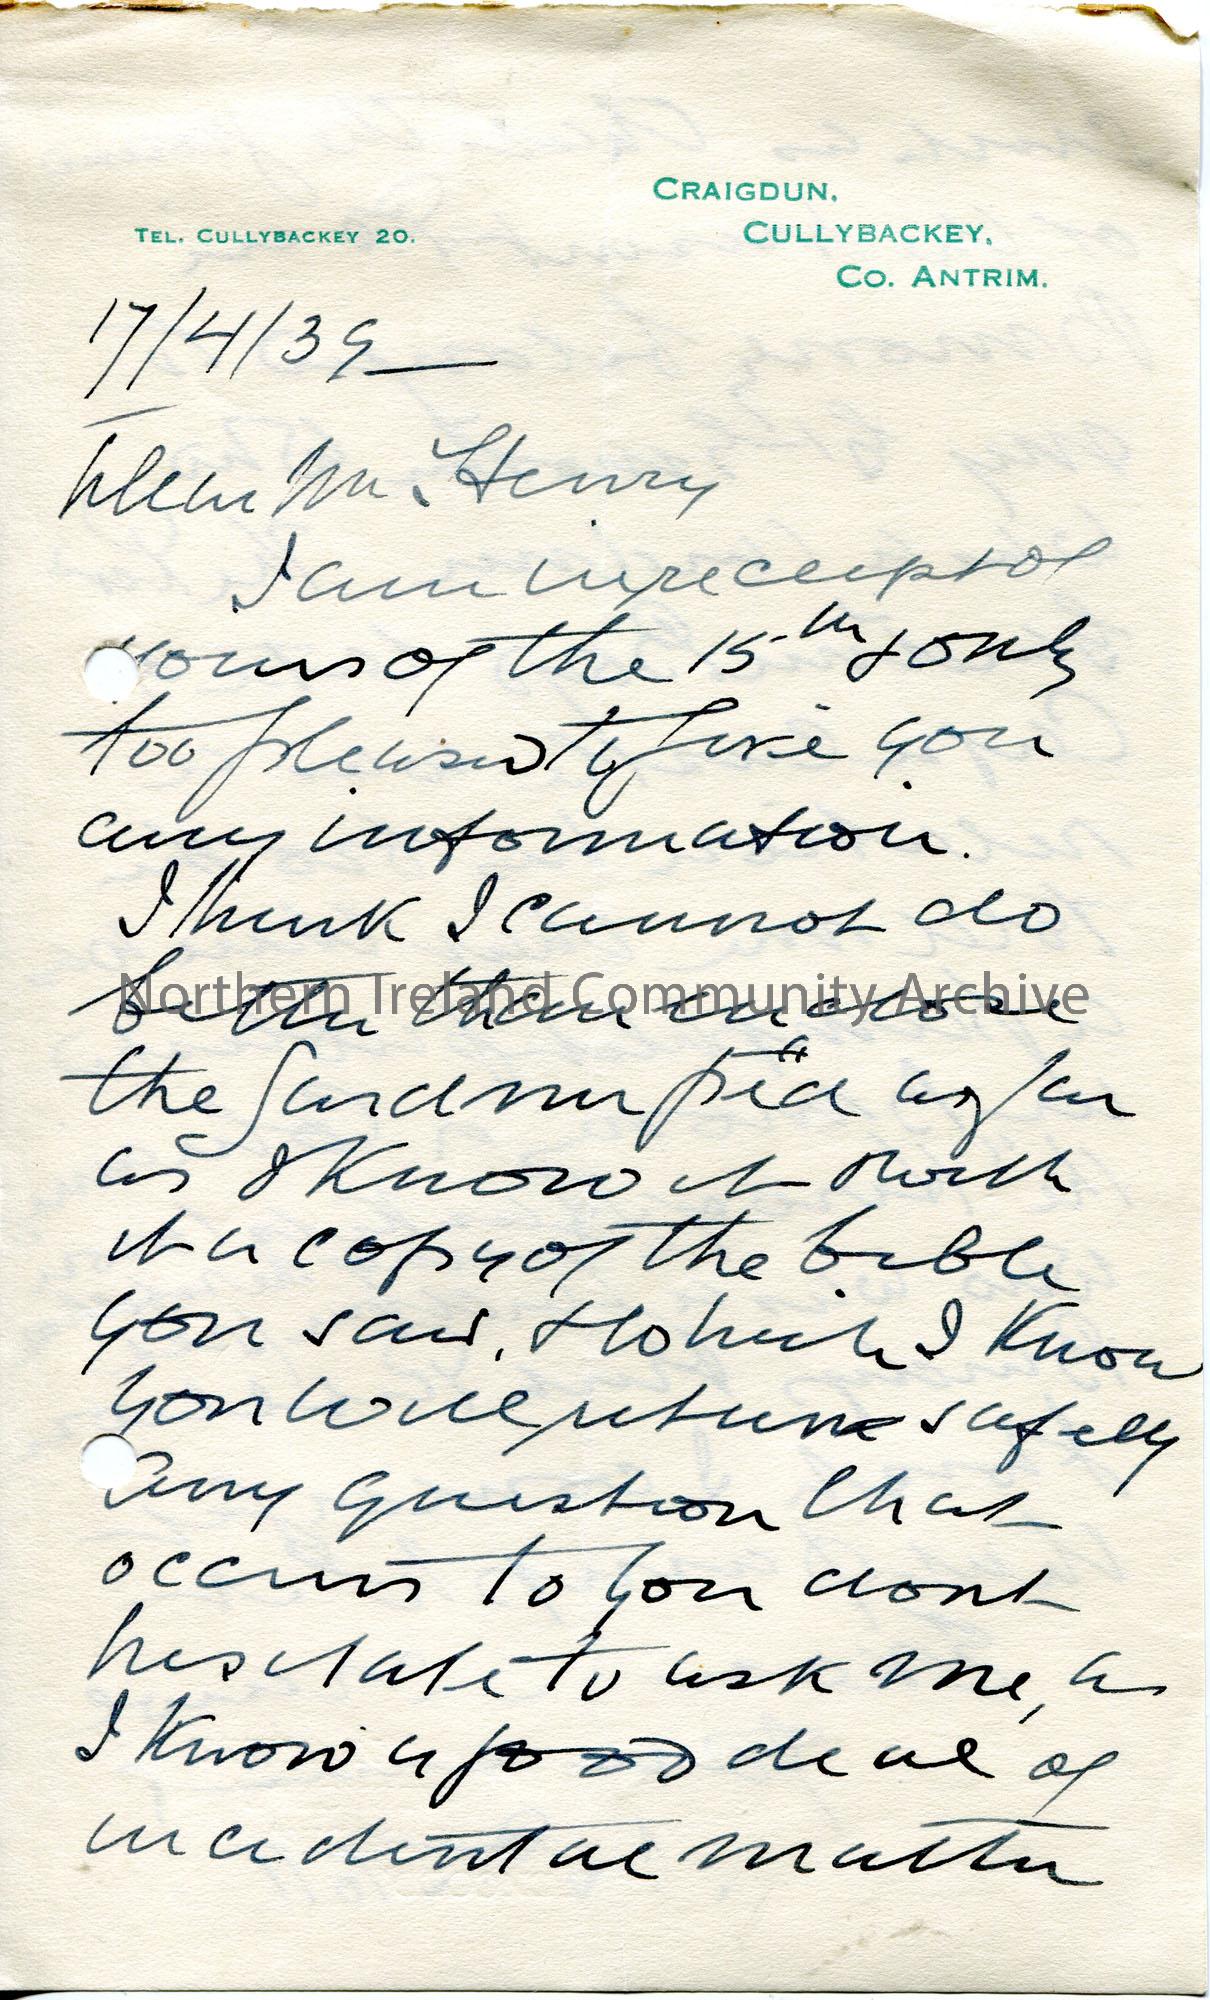 CRAIGDUN,
CULLYBACKEY,
CO. ANTRIM.
TEL. CULLYBACKEY 20.
17/4/39
Dear Mr. Henry
I am in receipt of
yours of the 15th & only
too pleased to give you
any information.
I think I cannot do
better than enclose
the Gardner ped as far
as I know it with
it a copy of the bible
you saw, & which I know
you will return safely
Any question that
occurs to you dont
hesitate to ask me, as
I know a good deal of
incidental matter
Northern Ireland Community Archive